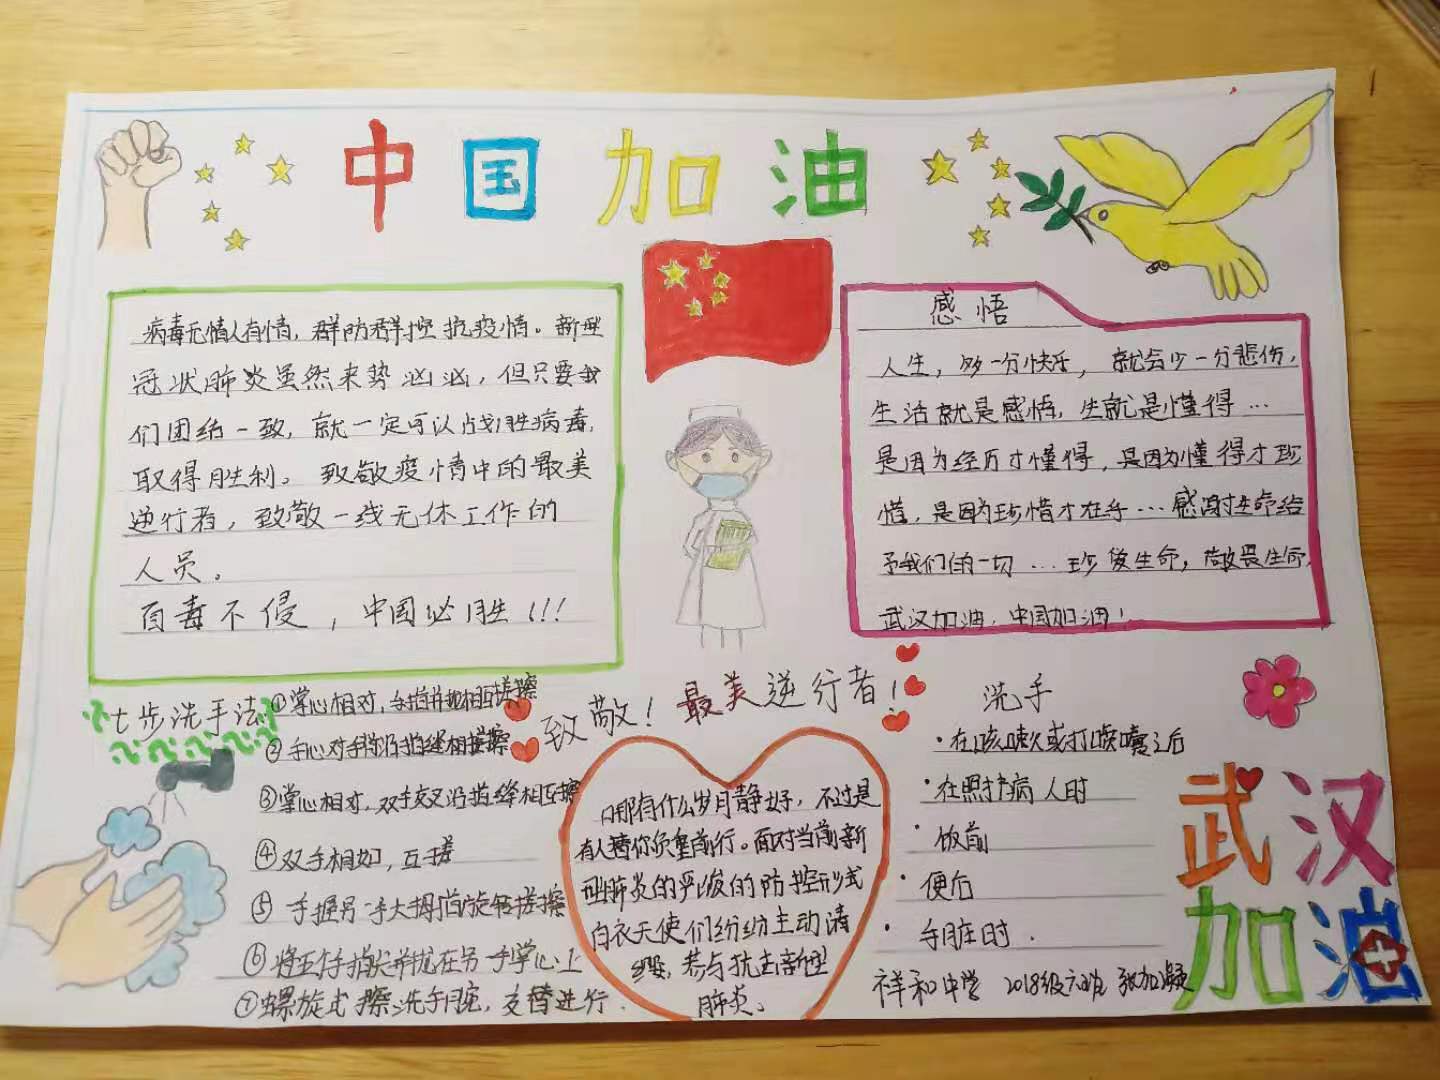 中国加油
病毒无情人有情，群防群控抗疫情。新型
冠状肺炎虽然来势汹汹，但只要我
们团结一致，就一定可以战胜病毒，
取得胜利。致敬疫情中的最美
逆行者，致敬一线无休工作的
人员。
百毒不侵，中国必胜！！！
感悟
人生，多一分快乐，就会少一分悲伤，
生活就是感悟，生就是懂得…
是因为经历才懂得，是因为懂得才珍
惜，是因为珍惜才在乎…感谢生命给
予我们的一切…珍爱生命，敬畏生命，
武汉加油，中国加油！
致敬！最美逆行者！
七步洗手法
①掌心相对，手指并拢相互搓擦
②手心对手背沿指缝相搓擦
③掌心相对，双手交叉沿指缝相互擦
④双手相扣，互搓
⑤手握另一手大拇指旋转搓擦
⑥将五个手指尖并拢在另一手掌心上
⑦螺旋式擦洗手腕，交替进行.
哪有什么岁月静好，不过是
有人替你负重前行。面对当前新
型肺炎的严峻的防控形式
白衣天使们纷纷主动请
缨，参与抗击新型
肺炎。
洗手
·在咳嗽或打喷嚏之后
·在照护病人时
·饭前
·便后
·手脏时.
祥和中学 2018级六班
武汉
加油